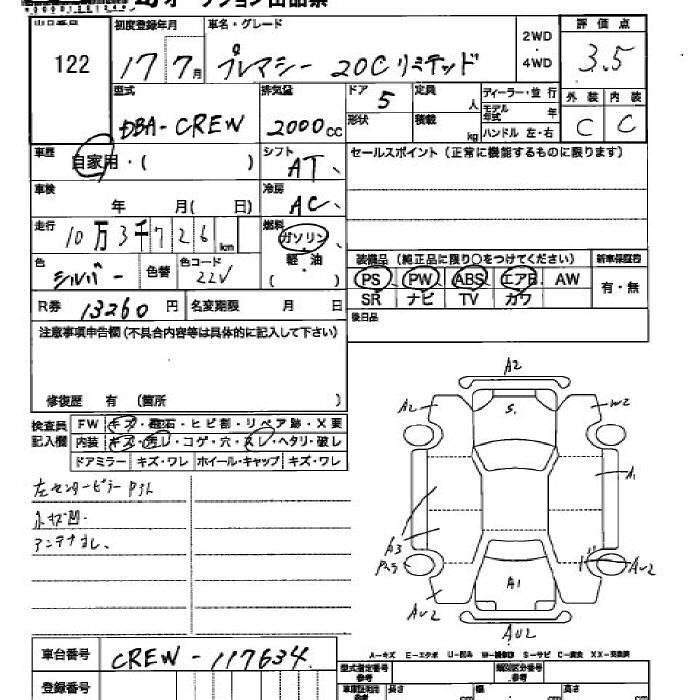 オークション出品票
出口番号 初度登録年月 車名・グレード 2WD・4WD 評価点
122 17 7月 プレマシー 20Cリミテッド 3.5
型式 排気量 ドア 定員 ディーラー・並行 外装 内装
DBA-CREW 2000cc 5 人 モデル年式 年 C C
形状 積載 kg ハンドル 左・右
車歴 自家用・( ) シフト AT、 セールスポイント(正常に機能するものに限ります)
車検 年 月( 日) 冷房 AC、
走行 10万3千726km 燃料 ガソリン、軽・油 ( )
色 シルバー 色替 色コード 22V
装備品(純正品に限り○をつけてください) 新車保証書
PS PW ABS エアB AW 有・無
SR ナビ TV カワ
R券 13260円 名変期限 月 日 後日品
注意事項申告欄(不具合内容等は具体的に記入して下さい)
修復歴 有 (箇所 )
検査員記入欄 FW キズ・飛石・ヒビ割・リペア跡・X要
内装 キズ・汚レ・コゲ・穴・スレ・ヘタリ・破レ
ドアミラー キズ・ワレ ホイール・キャップ キズ・ワレ
左センターピラー
アンテナなし、
A2
A2 S. W2
A1
A3
A1 AU2
AU2
AU2
A-キズ E-エクボ U-凹み W-補修跡 S-サビ C-腐食 XX-交換済
車台番号 CREW-117634.
型式指定番号 参考 類別区分番号 参考
登録番号 車庫証明用 参考 長さ cm 幅 cm 高さ cm